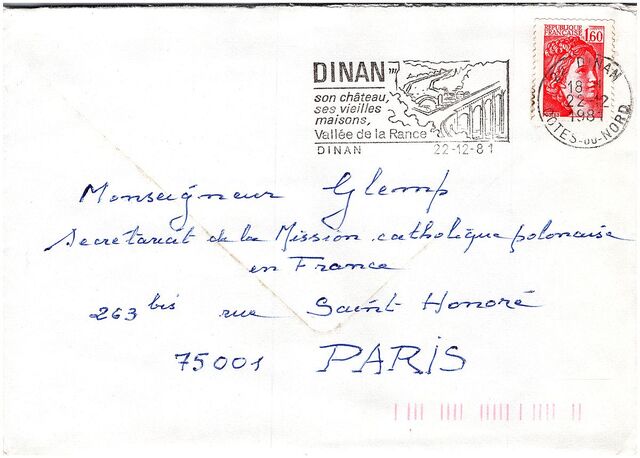 REPUBLIQUE
FRANÇAISE
1,60
DINAN
18 H
22-12
1981
COTES-DU-NORD
DINAN
son château,
ses vieilles
maisons,
Vallée de la Rance
DINAN 22-12-81
Monseigneur Glemp
Secretariat de la Mission catholique polonaise
en France
263 bis rue Saint Honoré
75001 PARIS